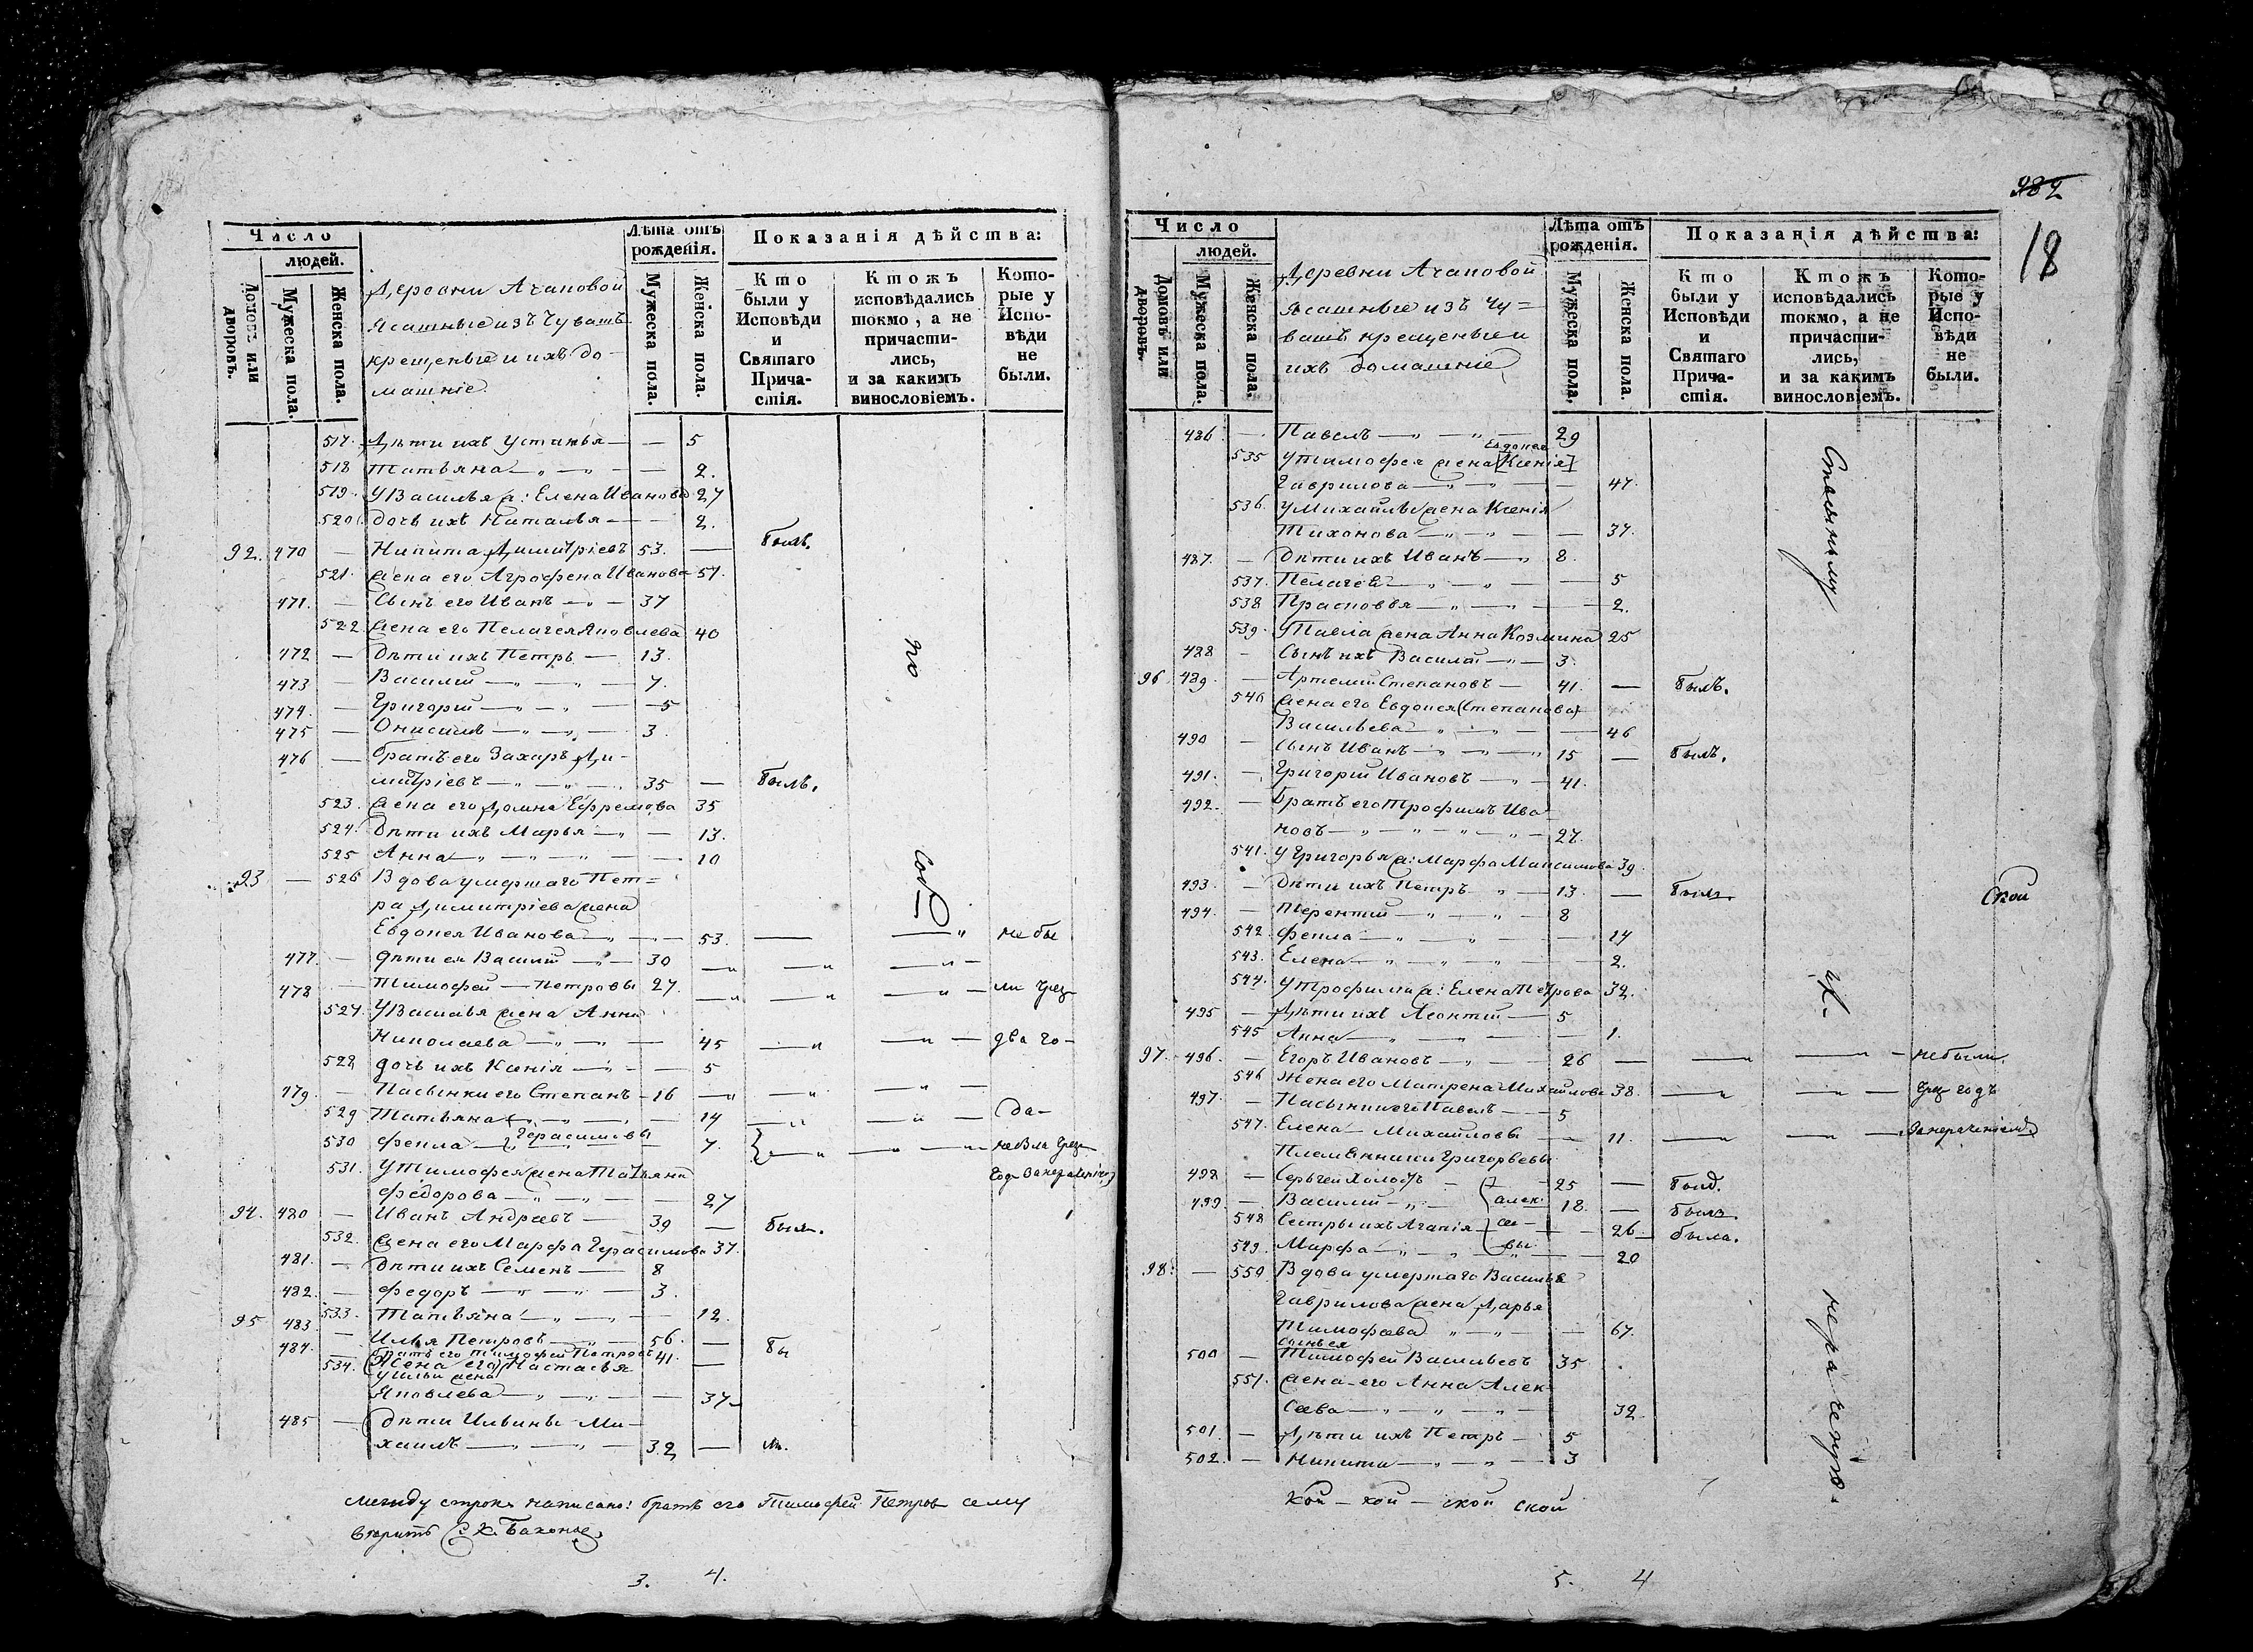 Число
людей.
Домовъ или дворовъ.
Мужеска пола.
Женска пола.
Деревни Агаповой
Ясашные изъ Чувашъ
крещеные и ихъ до-
машніе
Лѣта отъ рожденія.
Мужеска пола.
Женска пола.
Показанія дѣйства:
Кто были у Исповѣди и Святаго Прича-стія.
Ктожъ исповѣдались токмо, а не причасти-лись, и за какимъ винословіемъ.
Кото-рые у Испо-вѣди не были.
517. Дѣти ихъ Устинья — — 5
518 Татьяна — — 2.
519. У Василья ж: Елена Иванова 27
520 дочь ихъ Наталья — — 2.
92. 470 — Никита Димитріевъ 53. — былъ.
521. жена его Агрофена Иванова 51.
471. — Сынъ его Иванъ — 37
522 жена его Пелагея Яковлева 40
472 — Дѣти ихъ Петръ — 13.
473 — Василій — 7.
474. — Григорій — 5
475 — Онисимъ — 3.
476 — братъ его Захаръ Ди-
митріевъ — 35 — былъ.
523. жена его Домна Ефремова 35
524. Дѣти ихъ Марья — 13.
525 Анна — 10
93 — 526 Вдова умершаго Пет-
ра Димитріева жена
Евдокея Иванова — 53. — — не бы
477. — Дѣти ея Василій — 30
478 — Тимофей — Петровы 27. — ли чрез
527. У Василья жена Анна
Николаева — 45 — два го-
528 дочь ихъ Ксенія — 5
479. — Пасынки его Степанъ — 16
529 Татьяна — 14 — да-
530 Фекла — Герасимовы 7.
531. У Тимофея жена Татьяна
Федорова — 27
94. 480 — Иванъ Андреевъ — 39 — былъ.
532. жена его Марфа Герасимова 37.
481. — Дѣти ихъ Семенъ — 8
482. — Федоръ — 3.
533. Татьяна — 12.
95 483. — Илья Петровъ — 56. — бы
484. — братъ его Тимофей Петровъ 41. —
534. (Жена его) Настасья
у Ильи жена
Яковлева — 37
485 — Дѣти Ильины Ми-
хаилъ — 32 — лъ.
по
Между строкъ написано: братъ его Тимофей Петров сему
верить
3. 4.
282
18
Число
людей.
Домовъ или дворовъ.
Мужеска пола.
Женска пола.
Деревни Агаповой
Ясашные изъ Чу=
вашъ крещеные и
ихъ домашніе
Лѣта отъ рожденія.
Мужеска пола.
Женска пола.
Показанія дѣйства:
Кто были у Исповѣди и Святаго Прича-стія.
Ктожъ исповѣдались токмо, а не причасти-лись, и за какимъ винословіемъ.
Кото-рые у Испо-вѣди не были.
486. — Павелъ — 29
Евдокея
535 У Тимофея жена [Ксенія]
Гаврилова — 47.
536. У Михайлы жена Ксенія
Тихонова — 37.
487. — Дѣти ихъ Иванъ — 8.
537. Пелагея — 5
538 Прасковья — 2.
539. У Павла жена Анна Козмина 25
488 — Сынъ ихъ Василій — 3.
96 489. — Артемій Степановъ — 41. — былъ.
540 жена его Евдокея (Степанова)
Васильева — 46
490 — Сынъ Иванъ — 15 — былъ.
491. — Григорій Ивановъ — 41.
492. — братъ его Трофимъ Ива
новъ — 27.
541. У Григорья ж: Марфа Максимова 39.
493. — Дѣти ихъ Петръ — 13. — былъ
494. — Терентій — 8
542. Фекла — 14
543. Елена — 2.
544. У Трофима ж: Елена Петрова 32.
495 — Дѣти ихъ Леонтій — 5
545 Анна — 1.
97. 496. — Егоръ Ивановъ — 26 — не были
546 Жена его Матрена Михайлова 38. — чрез годъ
497. — Пасынки его Павелъ — 5
547. Елена — Михайловы — 11. — за нерачениемъ
Племянники Григорьевы
498 — Сергей холостъ — 25 —
499. — Василій — 18. — былъ
алек
сѣе
вы
548 Сестры ихъ Агапія — 26 — была.
549. Марфа — 20
98. — 550 Вдова умершаго Василья
Гаврилова жена Дарья
Тимофеева — 67.
сынъ ея
500 — Тимофей Васильевъ 35
551. жена его Анна Алек
сеева — 32
501. — Дѣти ихъ Петръ — 5
502. — Никита — 3
ской
их
кой — кой — ской ской
5. 4